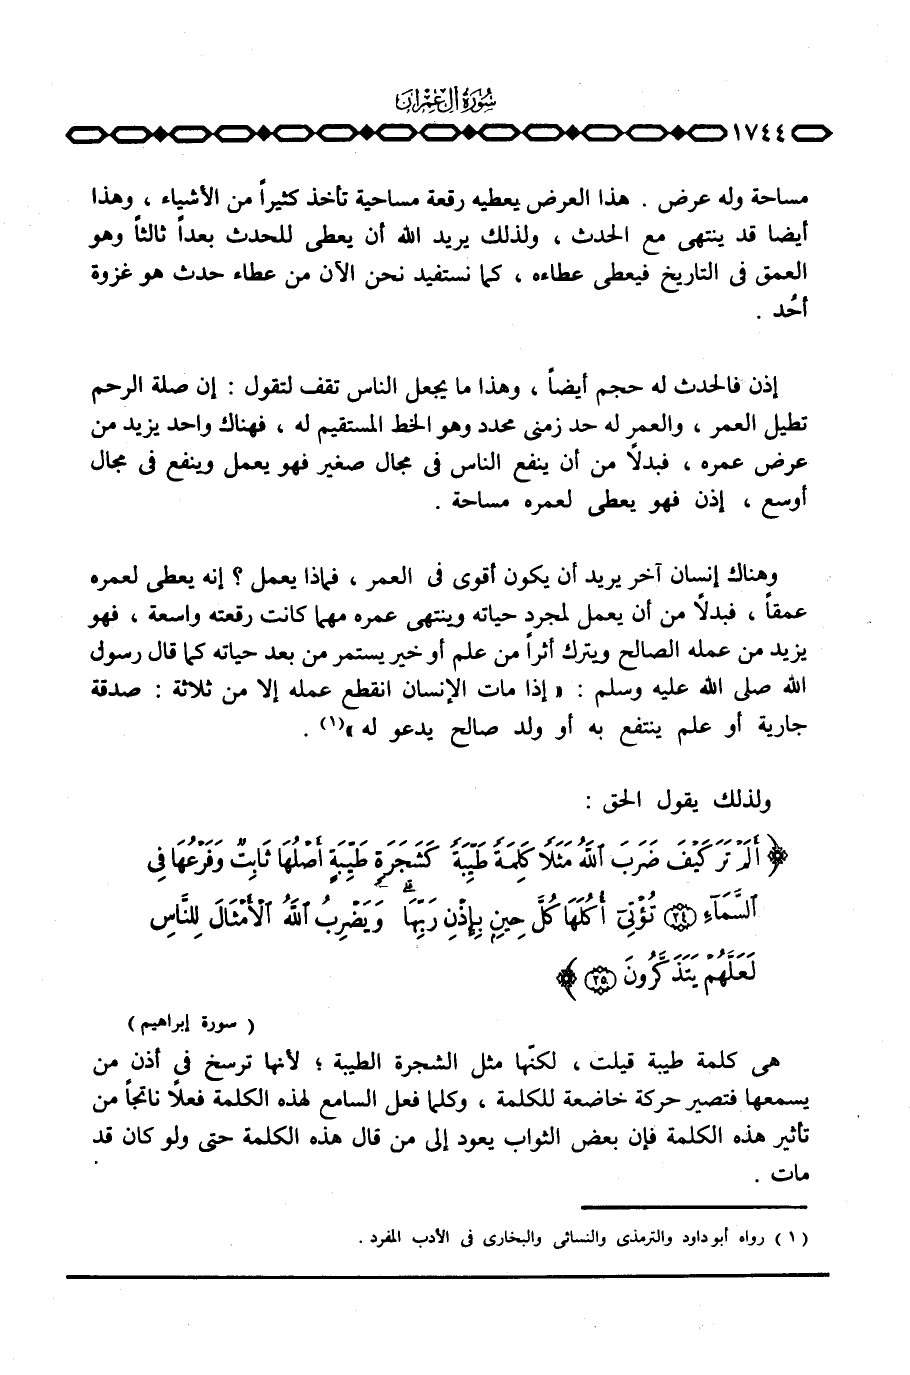 سُورَةُ آلِ عِمْرَان
١٧٤٤
مساحة وله عرض . هذا العرض يعطيه رقعة مساحية تأخذ كثيراً من الأشياء ، وهذا
أيضا قد ينتهى مع الحدث ، ولذلك يريد الله أن يعطى للحدث بعداً ثالثاً وهو
العمق فى التاريخ فيعطى عطاءه ، كما نستفيد نحن الآن من عطاء حدث هو غزوة
أحُد .
إذن فالحدث له حجم أيضاً ، وهذا ما يجعل الناس تقف لتقول : إن صلة الرحم
تطيل العمر ، والعمر له حد زمنى محدد وهو الخط المستقيم له ، فهناك واحد يزيد من
عرض عمره ، فبدلاً من أن ينفع الناس فى مجال صغير فهو يعمل وينفع فى مجال
أوسع ، إذن فهو يعطى لعمره مساحة .
وهناك إنسان آخر يريد أن يكون أقوى فى العمر ، فماذا يعمل ؟ إنه يعطى لعمره
عمقاً ، فبدلاً من أن يعمل لمجرد حياته وينتهى عمره مهما كانت رقعته واسعة ، فهو
يزيد من عمله الصالح ويترك أثراً من علم أو خير يستمر من بعد حياته كما قال رسول
الله صلى الله عليه وسلم : « إذا مات الإنسان انقطع عمله إلا من ثلاثة : صدقة
جارية أو علم ينتفع به أو ولد صالح يدعو له »(١) .
ولذلك يقول الحق :
﴿ أَلَمْ تَرَ كَيْفَ ضَرَبَ ٱللَّهُ مَثَلًا كَلِمَةً طَيِّبَةً كَشَجَرَةٍ طَيِّبَةٍ أَصْلُهَا ثَابِتٌ وَفَرْعُهَا فِى
ٱلسَّمَآءِ ﴿٢٤﴾ تُؤْتِىٓ أُكُلَهَا كُلَّ حِينٍۭ بِإِذْنِ رَبِّهَا ۗ وَيَضْرِبُ ٱللَّهُ ٱلْأَمْثَالَ لِلنَّاسِ
لَعَلَّهُمْ يَتَذَكَّرُونَ ﴿٢٥﴾ ﴾
( سورة إبراهيم )
هى كلمة طيبة قيلت ، لكنّها مثل الشجرة الطيبة ؛ لأنها ترسخ في أذن من
يسمعها فتصير حركة خاضعة للكلمة ، وكلما فعل السامع لهذه الكلمة فعلاً ناتجاً من
تأثير هذه الكلمة فإن بعض الثواب يعود إلى من قال هذه الكلمة حتى ولو كان قد
مات .
( ١ ) رواه أبو داود والترمذى والنسائى والبخارى فى الأدب المفرد .